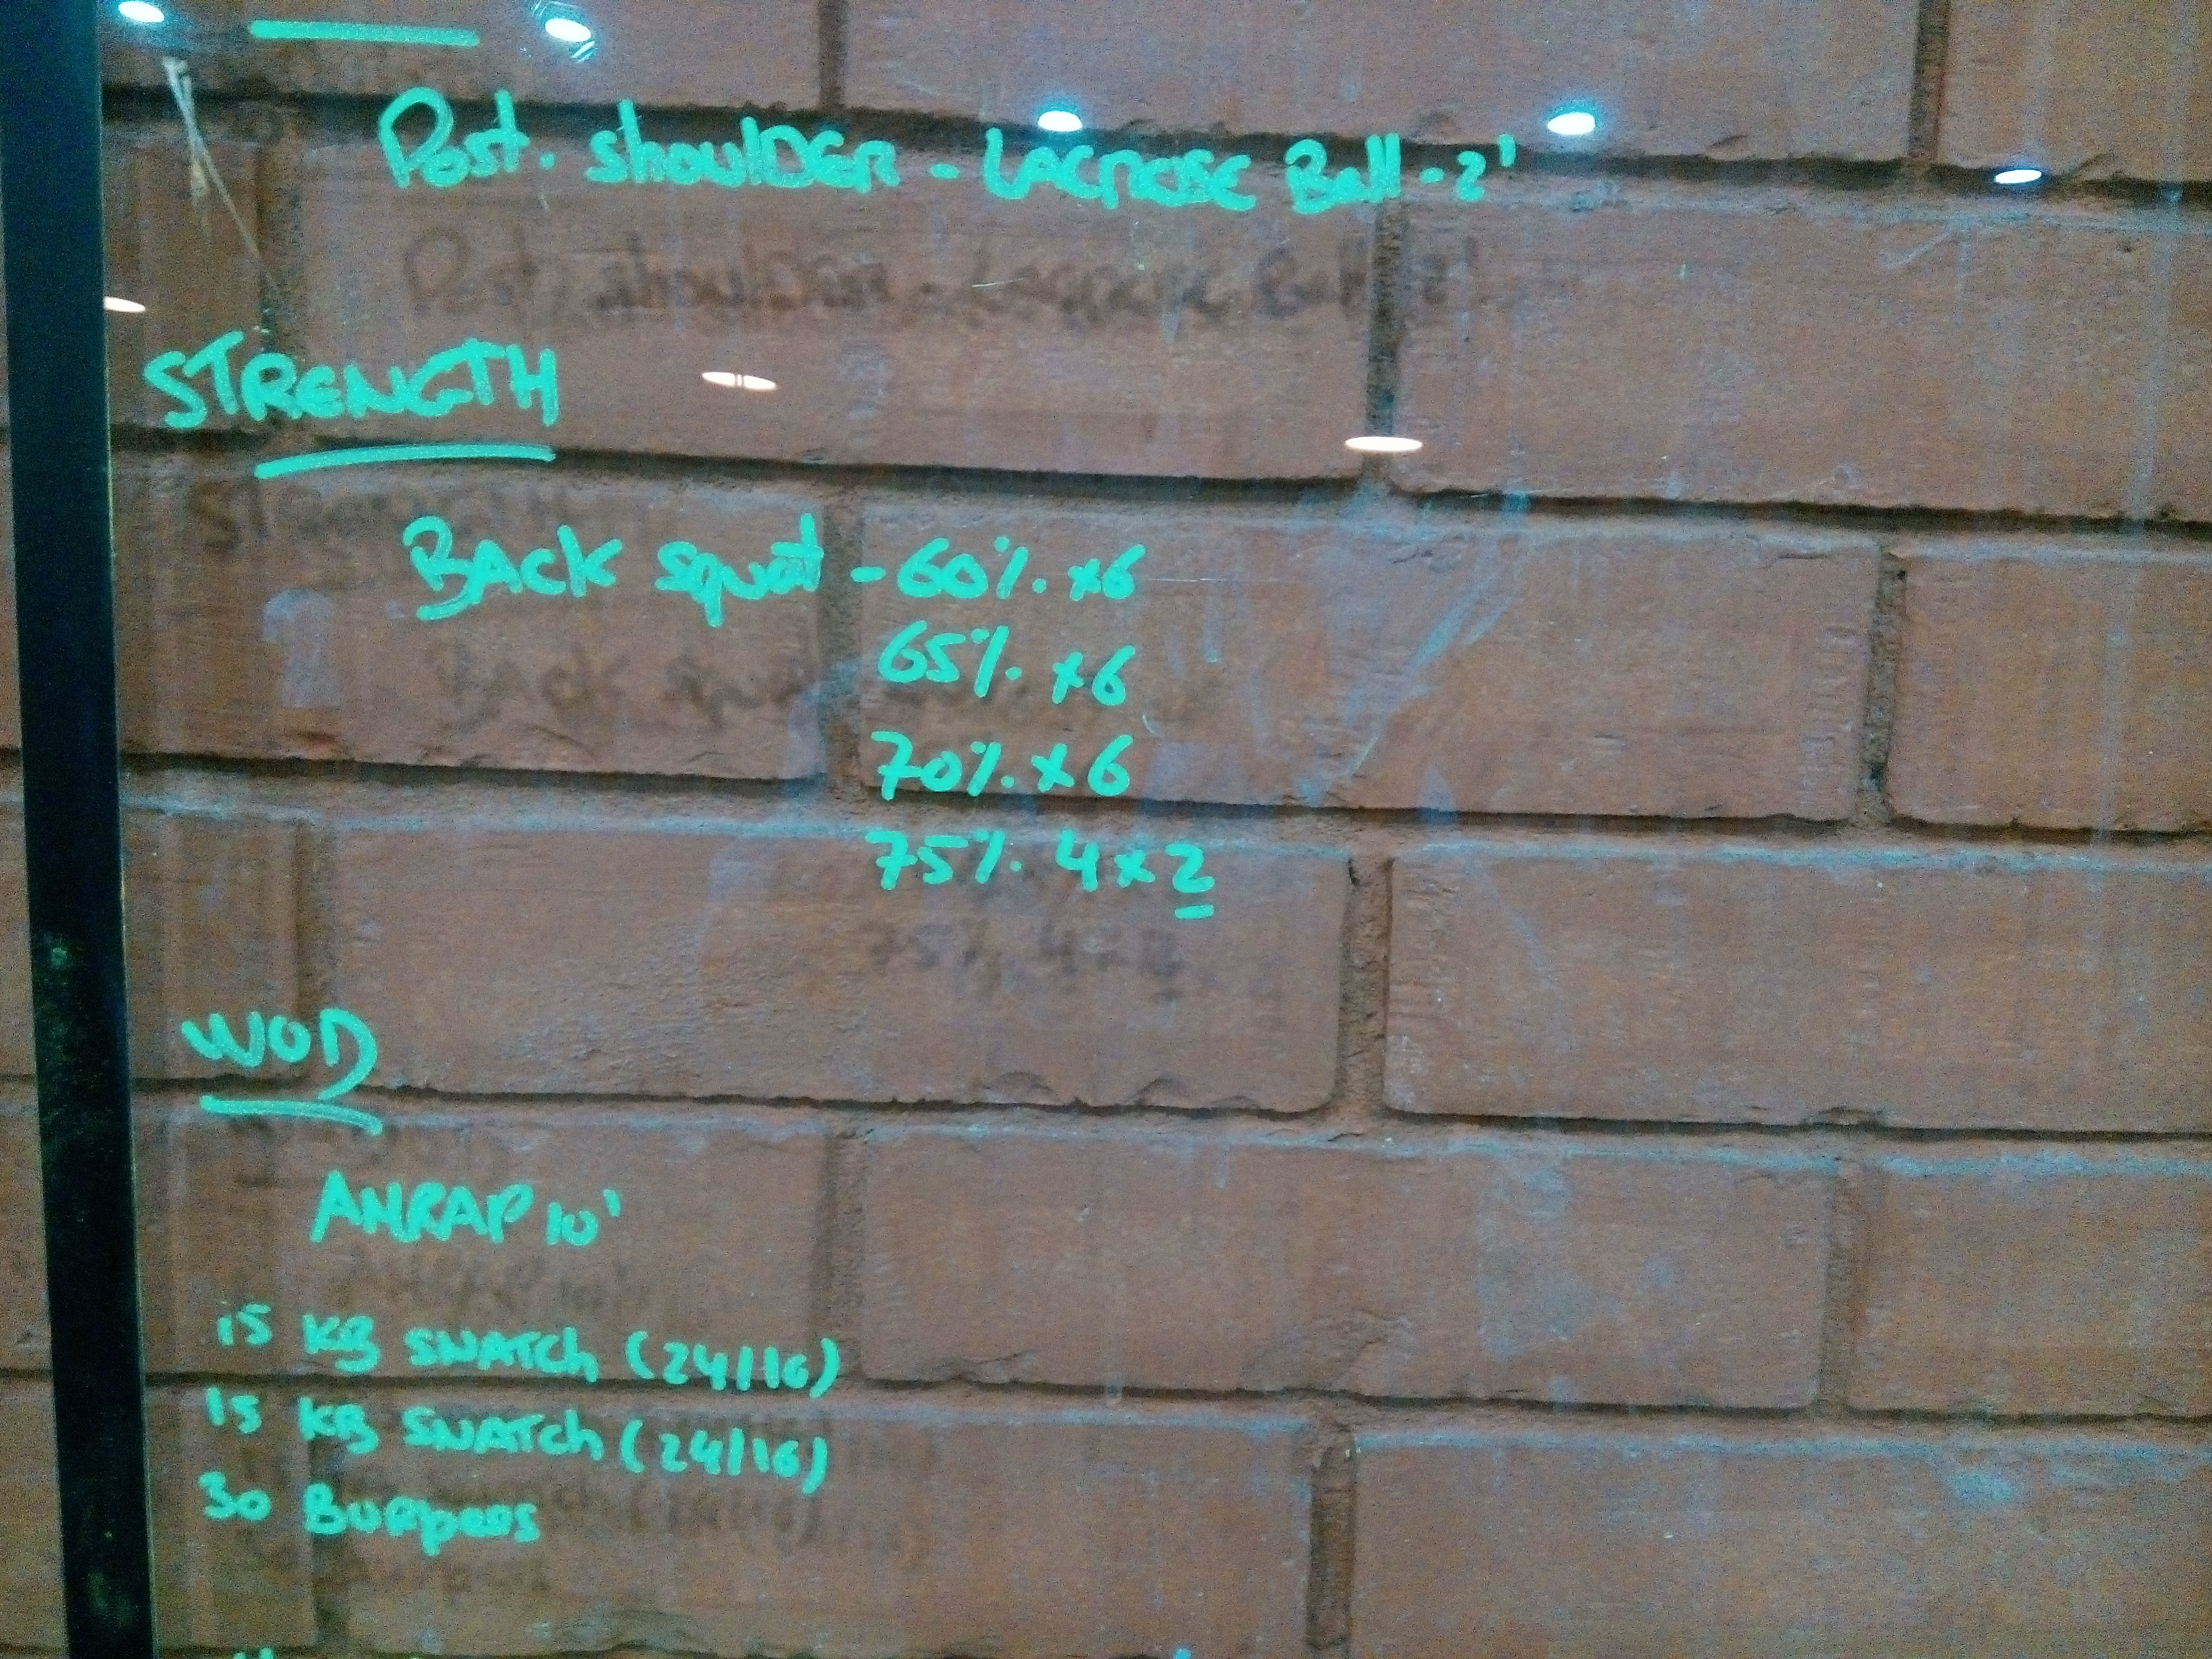 Post. shoulDER - LACROSE Ball - 2'
STRENGTH
BACK squat - 60% x6
65% x6
70% x6
75% 4x2
WOD
AMRAP 10'
15 KB SNATCh (24/16)
15 KB SNATCh (24/16)
30 Burpees